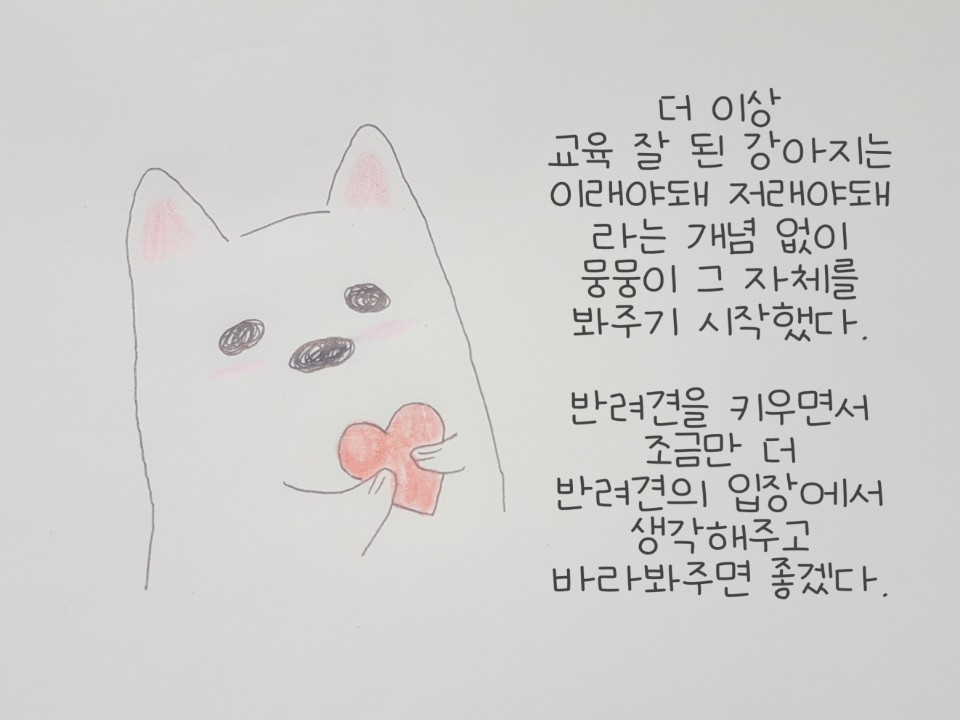 더 이상
교육 잘 된 강아지는
이래야돼 저래야돼
라는 개념 없이
뭉뭉이 그 자체를
봐주기 시작했다.
반려견을 키우면서
조금만 더
반려견의 입장에서
생각해주고
바라봐주면 좋겠다.